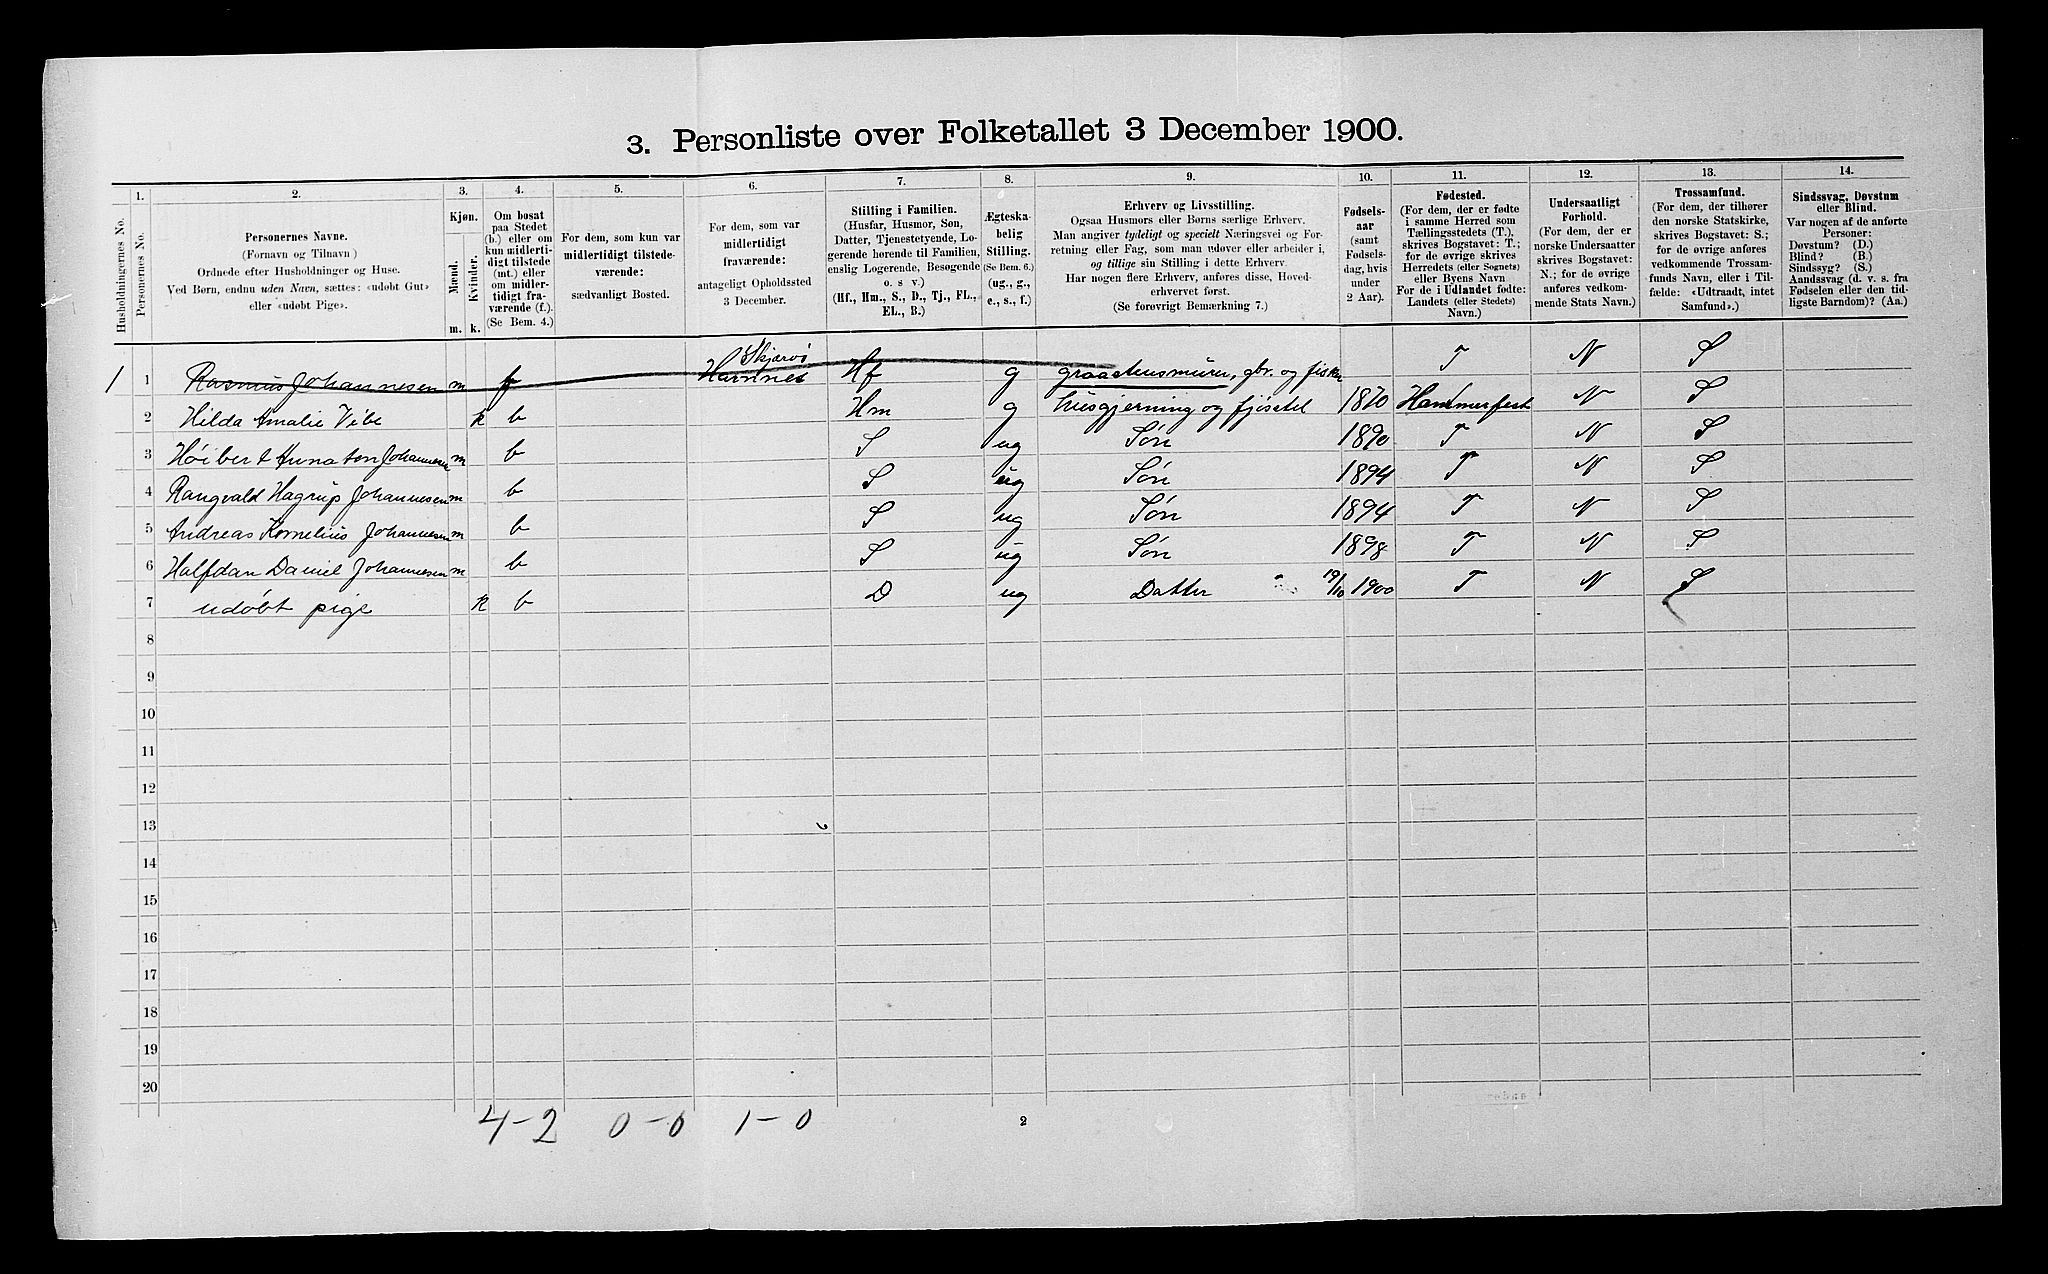 3. Personliste over Folketallet 3 December 1900.
1. 2. 3. 4. 5. 6. 7. 8. 9. 10. 11. 12. 13. 14.
Husholdningernes No.
Personernes No.
Personernes Navne.
(Fornavn og Tilnavn)
Ordnede efter Husholdninger og Huse.
Ved Børn, endnu uden Navn, sættes: «udøbt Gut»
eller «udøbt Pige».
Kjøn.
Mænd.
Kvinder.
m. k.
Om bosat
paa Stedet
(b.) eller om
kun midlerti-
digt tilstede
(mt.) eller
om midler-
tidigt fra-
værende (f.).
(Se Bem. 4.)
For dem, som kun var
midlertidigt tilstede-
værende:
sædvanligt Bosted.
For dem, som var
midlertidigt
fraværende:
antageligt Opholdssted
3 December.
Stilling i Familien.
(Husfar, Husmor, Søn,
Datter, Tjenestetyende, Lo-
gerende hørende til Familien,
enslig Logerende, Besøgende
o. s v.)
(Hf., Hm., S., D., Tj., FL.,
EL., B.)
Ægteska-
belig
Stilling.
(Se Bem. 6.)
(ug., g.,
e., s., f.)
Erhverv og Livsstilling.
Ogsaa Husmors eller Børns særlige Erhverv.
Man angiver tydeligt og specielt Næringsvei og For-
retning eller Fag, som man udøver eller arbeider i,
og tillige sin Stilling i dette Erhverv.
Har nogen flere Erhverv, anføres disse, Hoved-
erhvervet først.
(Se forøvrigt Bemærkning 7.)
Fødsels-
aar
(samt
Fødsels-
dag, hvis
under
2 Aar).
Fødested.
(For dem, der er fødte
i samme Herred som
Tællingsstedets (T.),
skrives Bogstavet: T.;
for de øvrige skrives
Herredets (eller Sognets)
eller Byens Navn
For de i Udlandet fødte:
Landets (eller Stedets)
Navn.)
Undersaatligt
Forhold.
(For dem, der er
norske Undersaatter
skrives Bogstavet:
N.; for de øvrige
anføres vedkom-
mende Stats Navn.)
Trossamfund.
(For dem, der tilhører
den norske Statskirke,
skrives Bogstavet: S.;
for de øvrige anføres
vedkommende Trossam-
funds Navn, eller i Til-
fælde: «Udtraadt, intet
Samfund».)
Sindssvag, Døvstum
eller Blind.
Var nogen af de anførte
Personer:
Døvstum? (D.)
Blind? (B.)
Sindssyg? (S.)
Aandssvag (d. v. s. fra
Fødselen eller den tid-
ligste Barndom)? (Aa.)
Skjærvø
1 1 Rasmus Johannesen m f Havnnes Hf g graastensmurer, gbr. og fisker T N S
2 Hilda Amalie Vibe k b Hm g husgjerning og fjøsstel 1870 Hammerfest N S
3 Høibert Annaton Johannesen m b S ug Søn 1890 T N S
4 Rangvald Hagrup Johannesen m b S ug Søn 1894 T N S
5 Andreas Kornelius Johannesen m b S ug Søn 1894 T N S
6 Halfdan Daniel Johannesen m b S ug Søn 1898 T N S
7 udøbt pige k b D ug Datter 19/10 1900 T N S
8
9
10
11
12
13
14
15
16
17
18
19
20
4-2 0-0 1-0 2